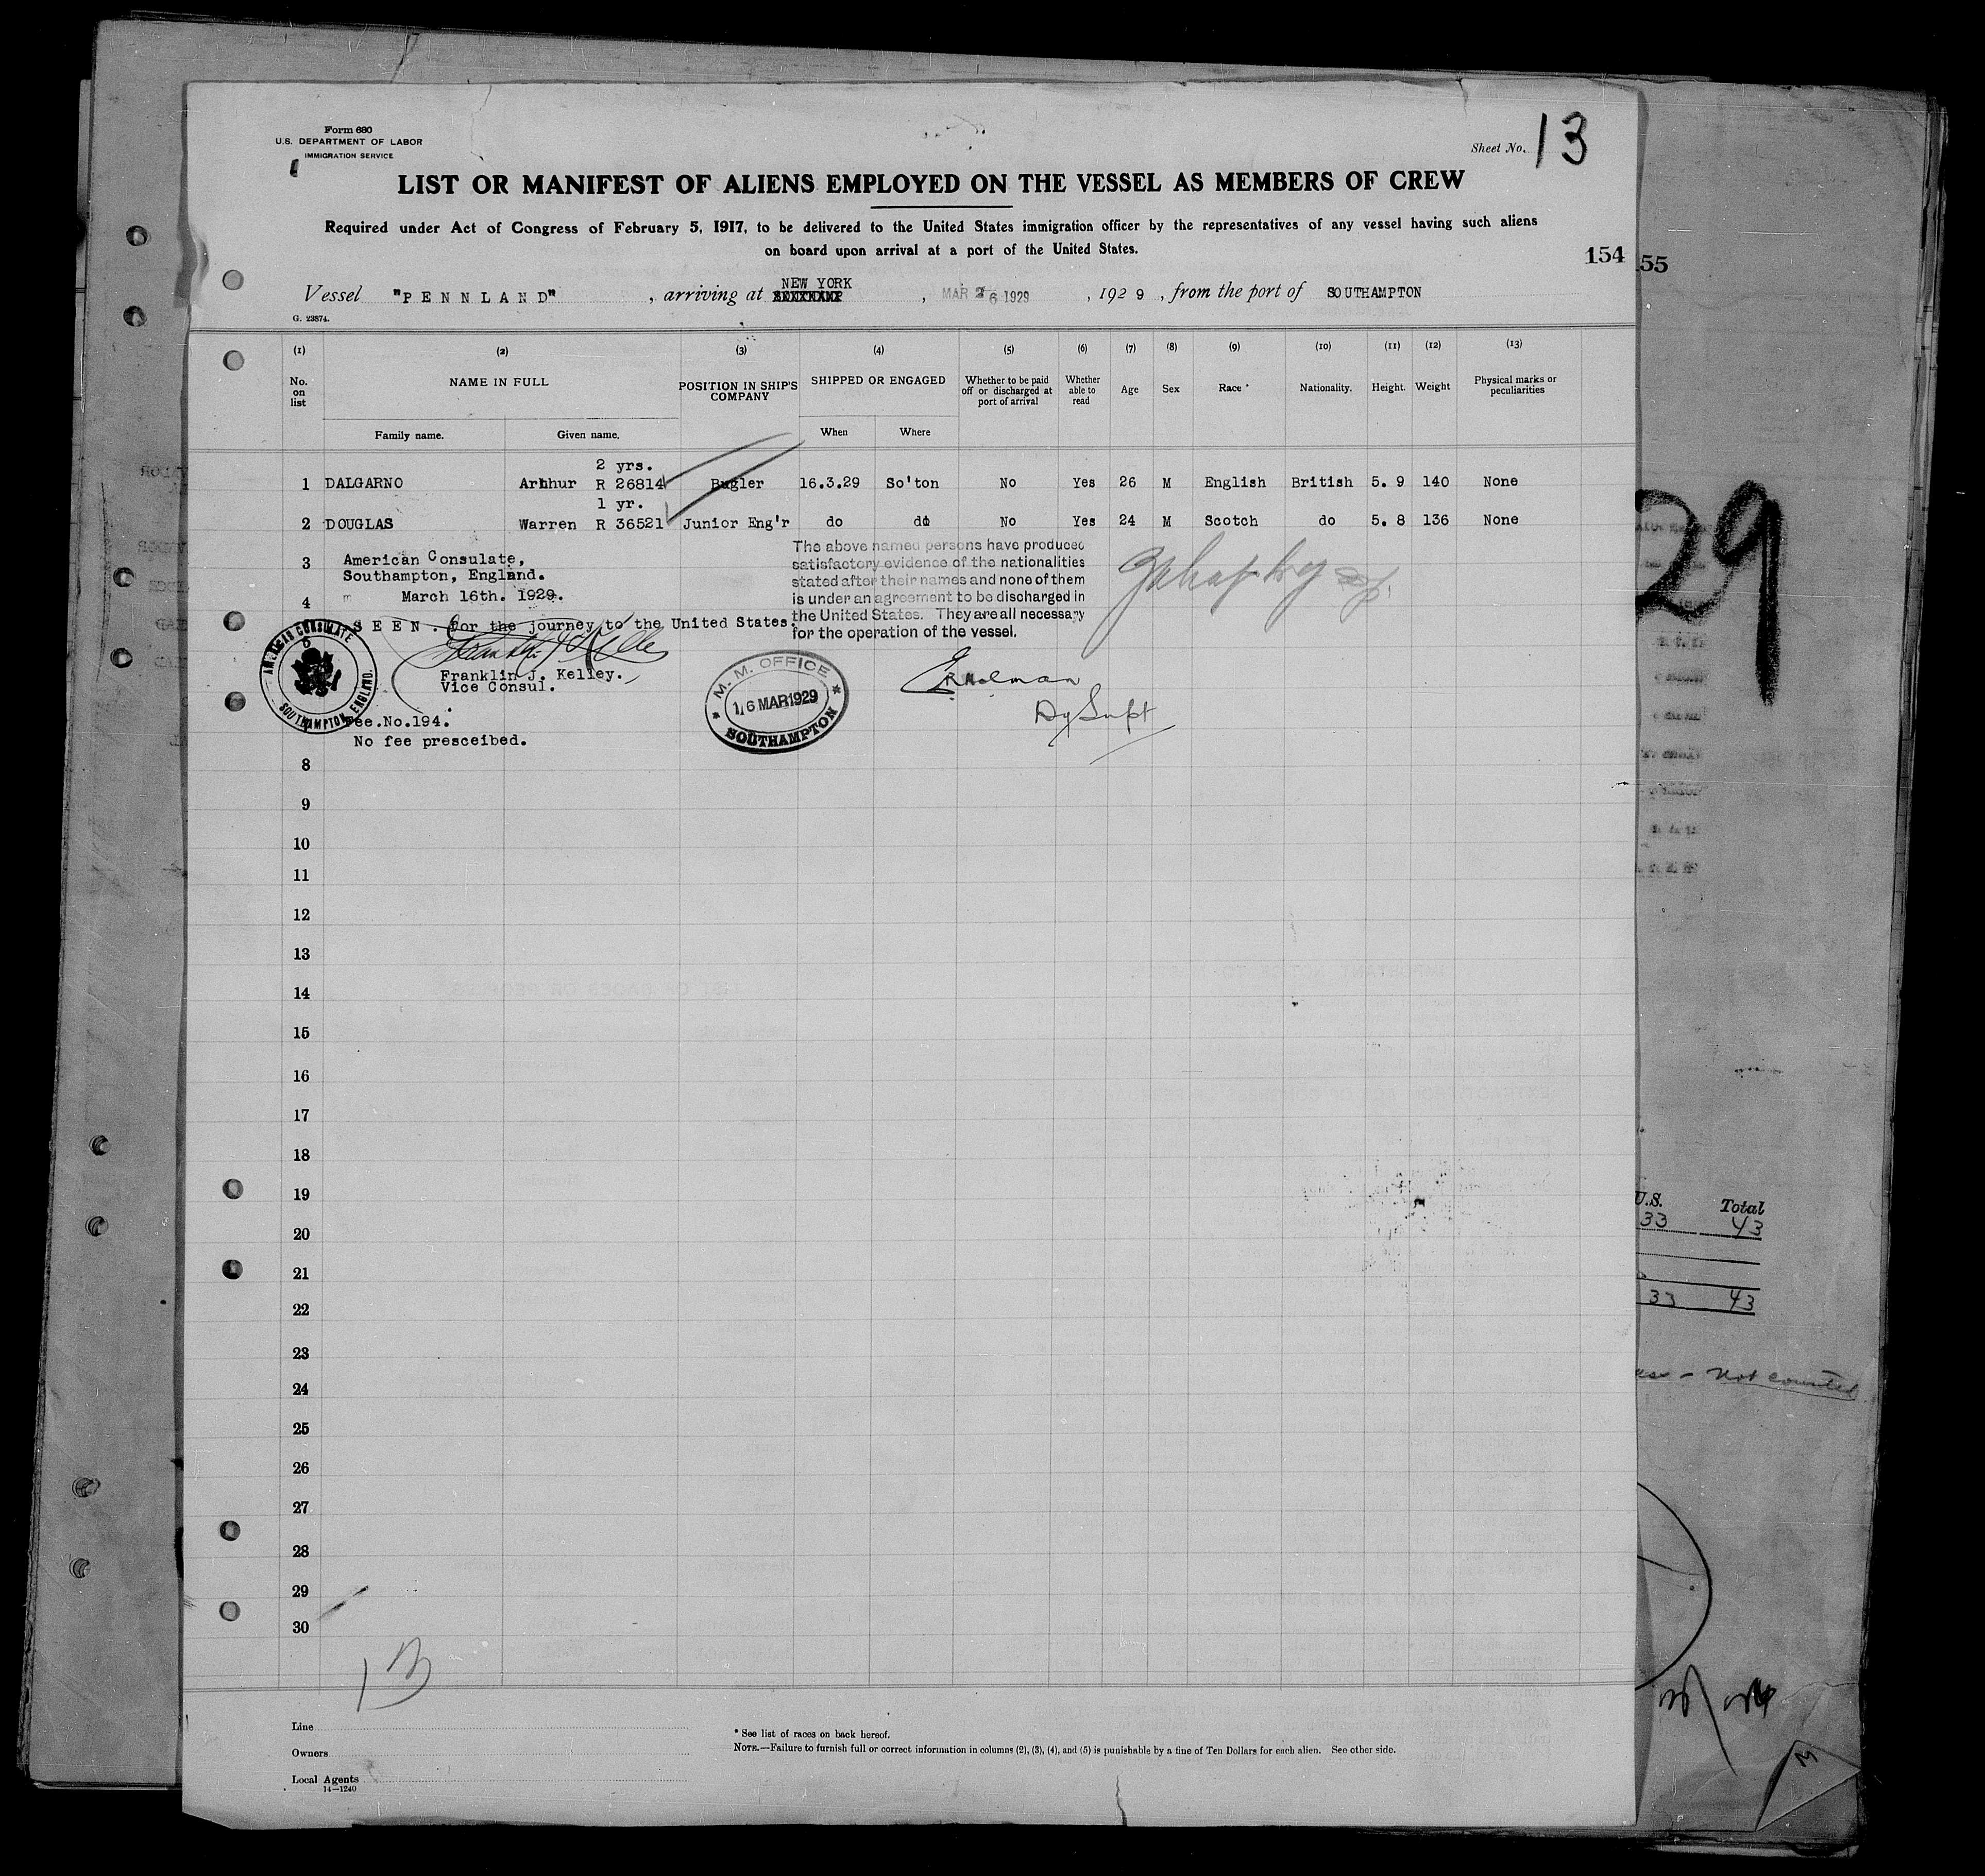 Form 680
U.S. DEPARTMENT OF LABOR
IMMIGRATION SERVICE
Sheet No. 13
LIST OR MANIFEST OF ALIENS EMPLOYED ON THE VESSEL AS MEMBERS OF CREW
Required under Act of Congress of February 5, 1917, to be delivered to the United States immigration officer by the representatives of any vessel having such aliens
on board upon arrival at a port of the United States.
154
55
Vessel "PENNLAND", arriving at NEW YORK, MAR 26 1929, 1929, from the port of SOUTHAMPTON
G. 23874.
(1) (2) (3) (4) (5) (6) (7) (8) (9) (10) (11) (12) (13)
No. on list
NAME IN FULL
POSITION IN SHIP'S COMPANY
SHIPPED OR ENGAGED
Whether to be paid off or discharged at port of arrival
Whether able to read
Age
Sex
Race *
Nationality.
Height.
Weight
Physical marks or peculiarities
Family name.
Given name.
When
Where
2 yrs.
1 DALGARNO Arthur R 26814 Bugler 16.3.29 So'ton No Yes 26 M English British 5. 9 140 None
1 yr.
2 DOUGLAS Warren R 36521 Junior Eng'r do do No Yes 24 M Scotch do 5. 8 136 None
3
4
American Consulate,
Southampton, England.
March 16th. 1929.
SEEN. for the journey to the United States.
Franklin J. Kelley
Franklin J. Kelley.
Vice Consul.
AMERICAN CONSULATE
SOUTHAMPTON, ENGLAND.
Fee.No.194.
No fee presceibed.
The above named persons have produced
satisfactory evidence of the nationalities
stated after their names and none of them
is under an agreement to be discharged in
the United States. They are all necessary
for the operation of the vessel.
M. M. OFFICE
16 MAR 1929
SOUTHAMPTON
Dy Supt
8
9
10
11
12
13
14
15
16
17
18
19
20
21
22
23
24
25
26
27
28
29
30
13
Line
Owners
Local Agents
14—1240
* See list of races on back hereof.
NOTE.—Failure to furnish full or correct information in columns (2), (3), (4), and (5) is punishable by a fine of Ten Dollars for each alien. See other side.
29
U.S. Total
33 43
33 43
- not counted